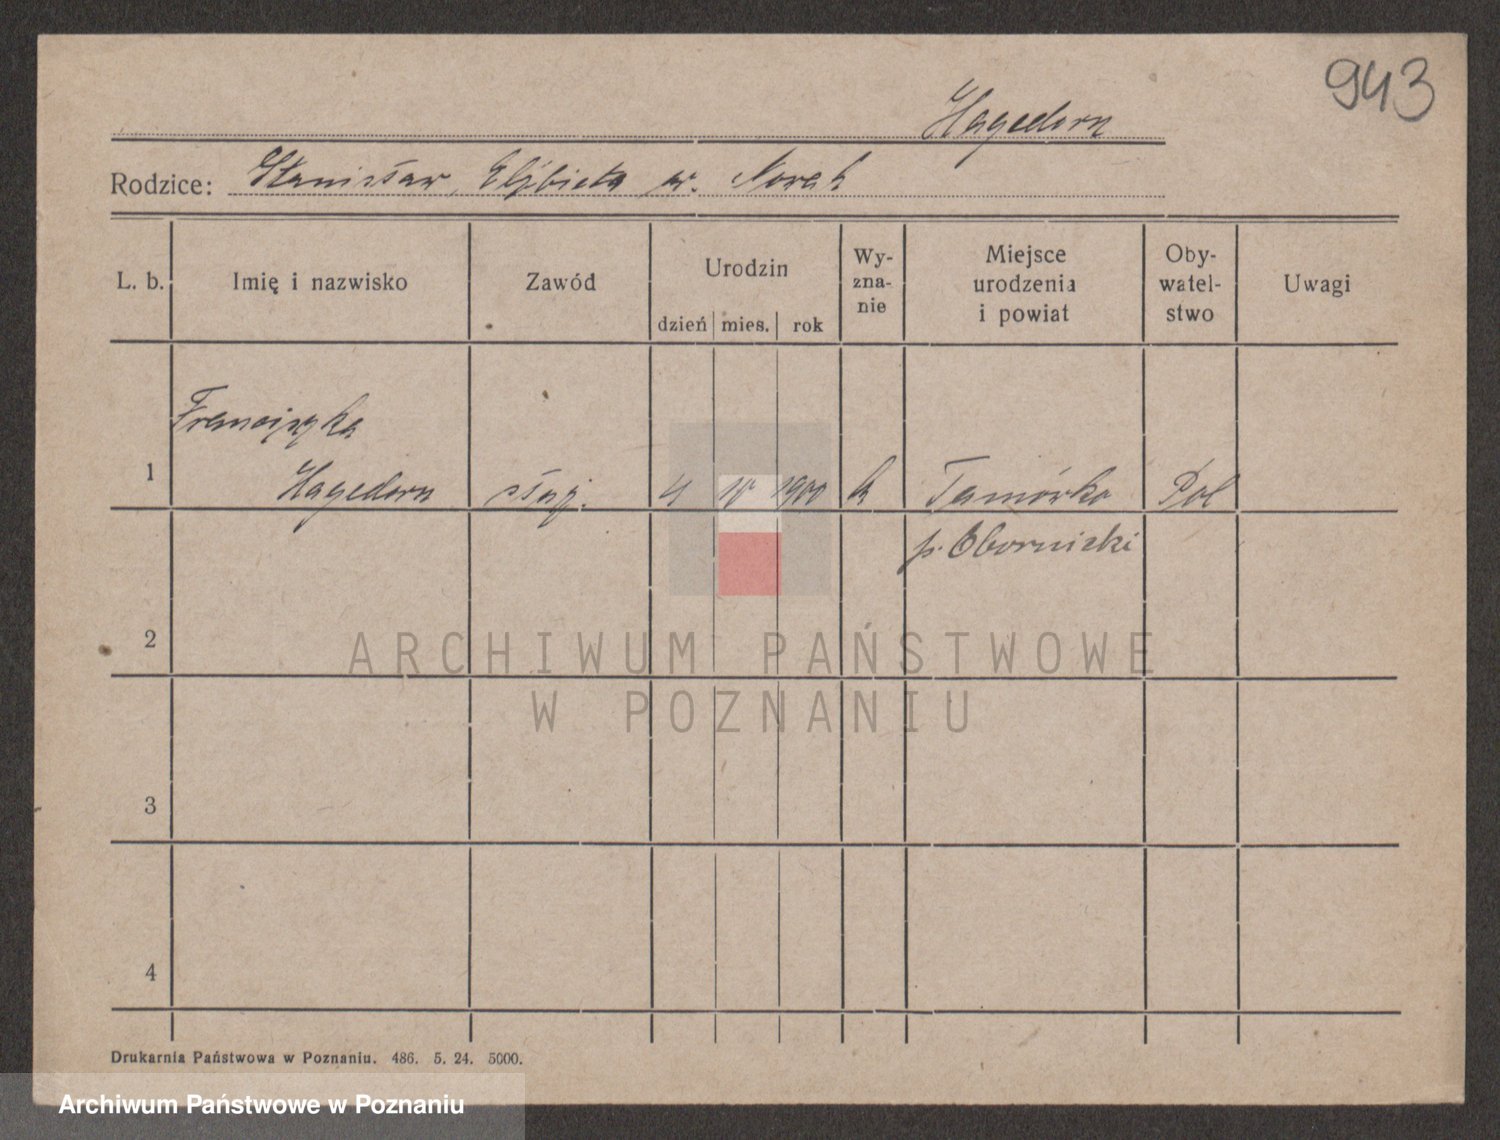 943
Hagedorn
Rodzice: Stanisław, Elżbieta ur. Nowak
L. b.
Imię i nazwisko
Zawód
Urodzin
dzień mies. rok
Wy-
zna-
nie
Miejsce
urodzenia
i powiat
Oby-
watel-
stwo
Uwagi
Franciszka
1 Hagedorn służ. 4 10 1900 k Pol
p. Obornicki
2
3
4
ARCHIWUM PAŃSTWOWE
W POZNANIU
Drukarnia Państwowa w Poznaniu. 486. 5. 24. 5000.
Archiwum Państwowe w Poznaniu